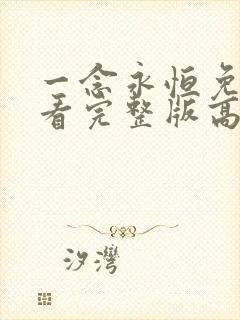 一念永恒免
看完整版高
汐灣